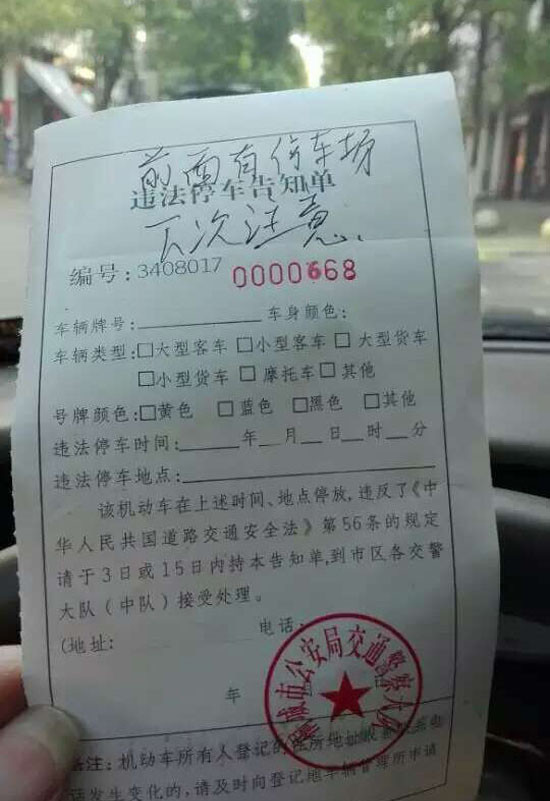 前面有停车场
违法停车告知单
下次注意.
编号:3408017 0000668
车辆牌号:________ 车身颜色:
车辆类型:□大型客车 □小型客车 □大型货车
□小型货车 □摩托车 □其他
号牌颜色:□黄色 □蓝色 □黑色 □其他
违法停车时间:____年__月__日__时__分
违法停车地点:________
该机动车在上述时间、地点停放,违反了《中
华人民共国道路交通安全法》第56条的规定
请于3日或15日内持本告知单,到市区各交警
大队(中队)接受处理。
(地址: 电话:
年
城市公安局交通警察大队
备注:机动车所有人登记的住所地址或者联系电
话发生变化的,请及时向登记地车辆管理所申请